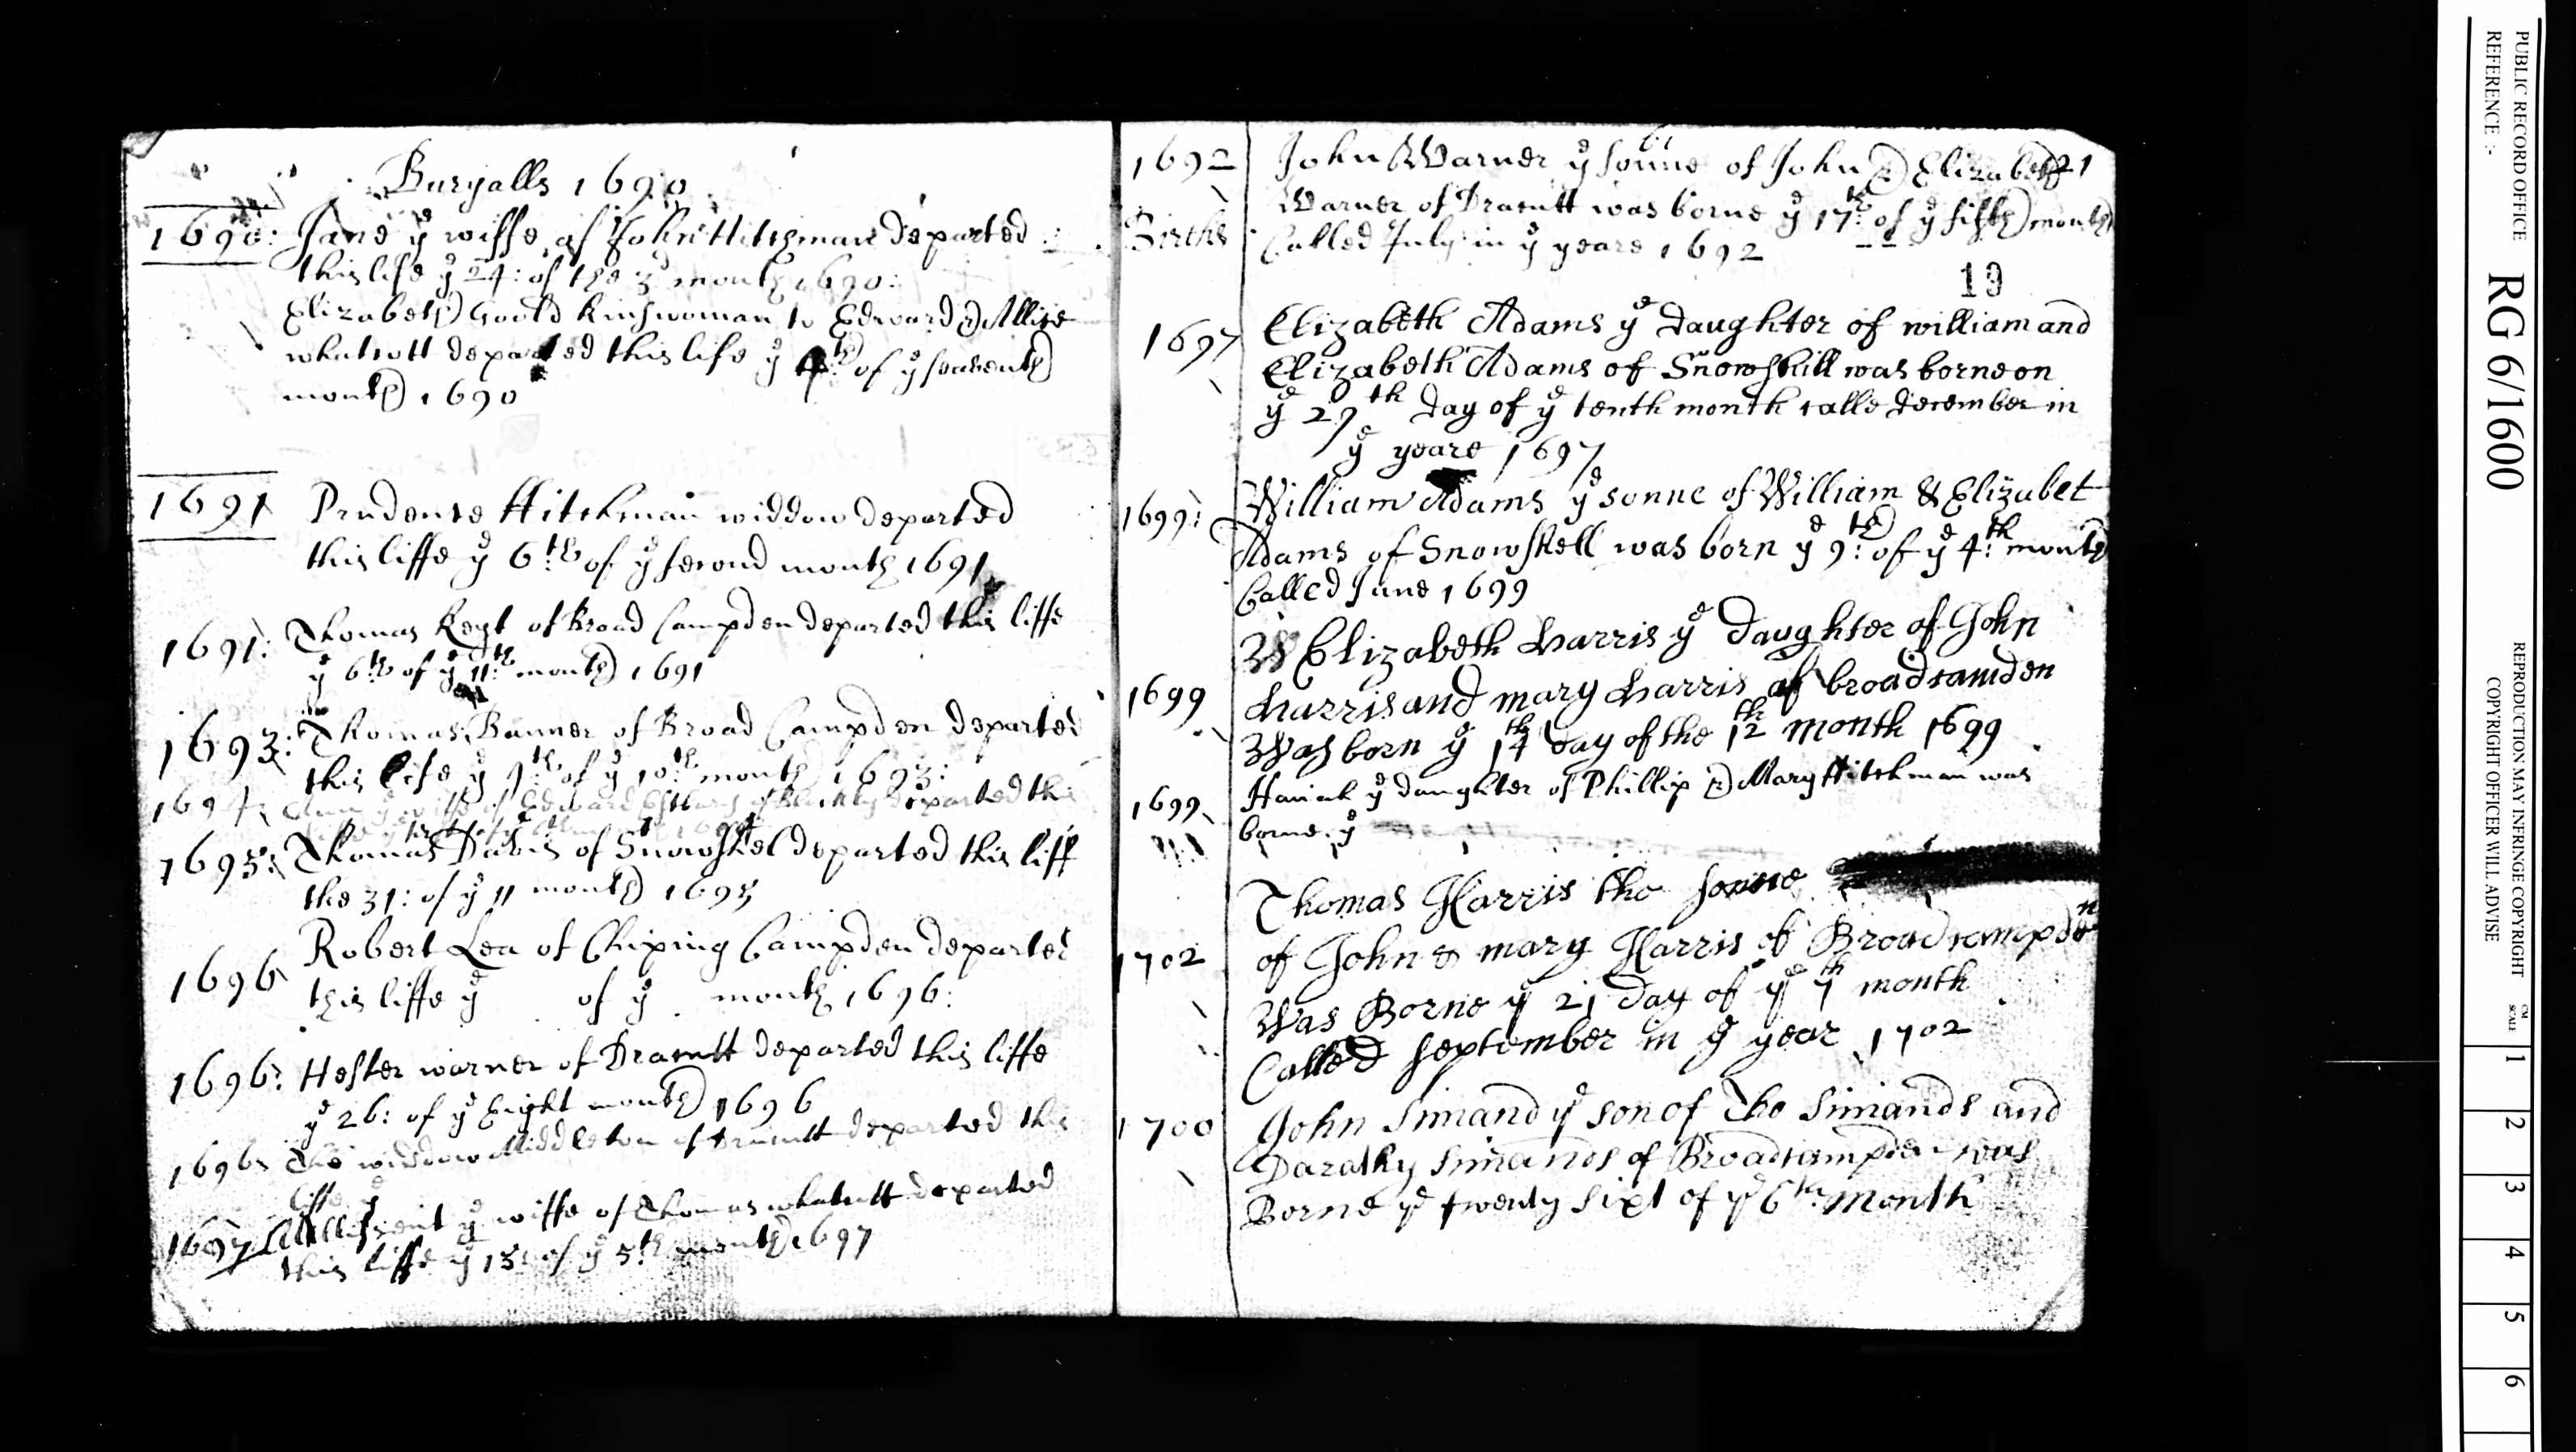 Buryalls 1690
1690: Jane ye wiffe of John Hitchman departed
this life ye 24: of the 3d month 1690:
Elizabeth Goold kinswoman to Edward & Allise
whatcott departed this life ye of ye seaventh
month 1690
1691 Prudence Hitchman widdow departed
this liffe ye 6th of ye second month 1691
1691: Thomas Keyt of Broad Campden departed this liffe
ye 6th of ye 11th month 1691
1693: Thomas Banner of Broad Campden departed
this life ye 9th of ye 10th month 1693:
1694: ye wiffe of Edward of departed this
1695: Thomas Davis of Snowshel departed this liff
the 31: of ye 11 month 1695
1696 Robert Lea of Chiping Campden departed
this liffe ye of ye month 1696:
1696: Hester warner of Dracutt departed this liffe
ye 26: of ye Eight month 1696
1696 The widdow Middleton of Dracutt departed this
liffe ye
1697 Millisent ye wiffe of Thomas whatcott departed
this liffe ye 13: of ye 5th month 1697
1692 John Warner ye sonne of John & Elizabeth 21
Births Warner of Dracutt was borne ye 17th of ye fifth month
Called July in ye yeare 1692
19
1697 Elizabeth Adams ye daughter of william and
Elizabeth Adams of Snowshill was borne on
ye 27th day of ye tenth month calle december in
ye yeare 1697
1699: William Adams ye sonne of William & Elizabet
Adams of Snowshell was born ye 9th: of ye 4th: month
Called June 1699
Elizabeth harris ye daughter of John
1699 harris and mary harris of broadcamden
Was born ye 14th day of the 12th month 1699
1699 Hanah ye daughter of Phillip & Mary Hitchman was
borne ye
Thomas Harris the sonne
1702 of John & mary Harris of Broadcampden
Was Borne ye 21 day of ye 7th month
Called september in ye year 1702
1700 John Simand ye son of Tho Simands and
Darathy Simands of Broadcampden was
Borne ye twenty sixt of ye 6th month
PUBLIC RECORD OFFICE
REFERENCE :-
RG 6/1600
REPRODUCTION MAY INFRINGE COPYRIGHT
COPYRIGHT OFFICER WILL ADVISE
CM
SCALE
1
2
3
4
5
6